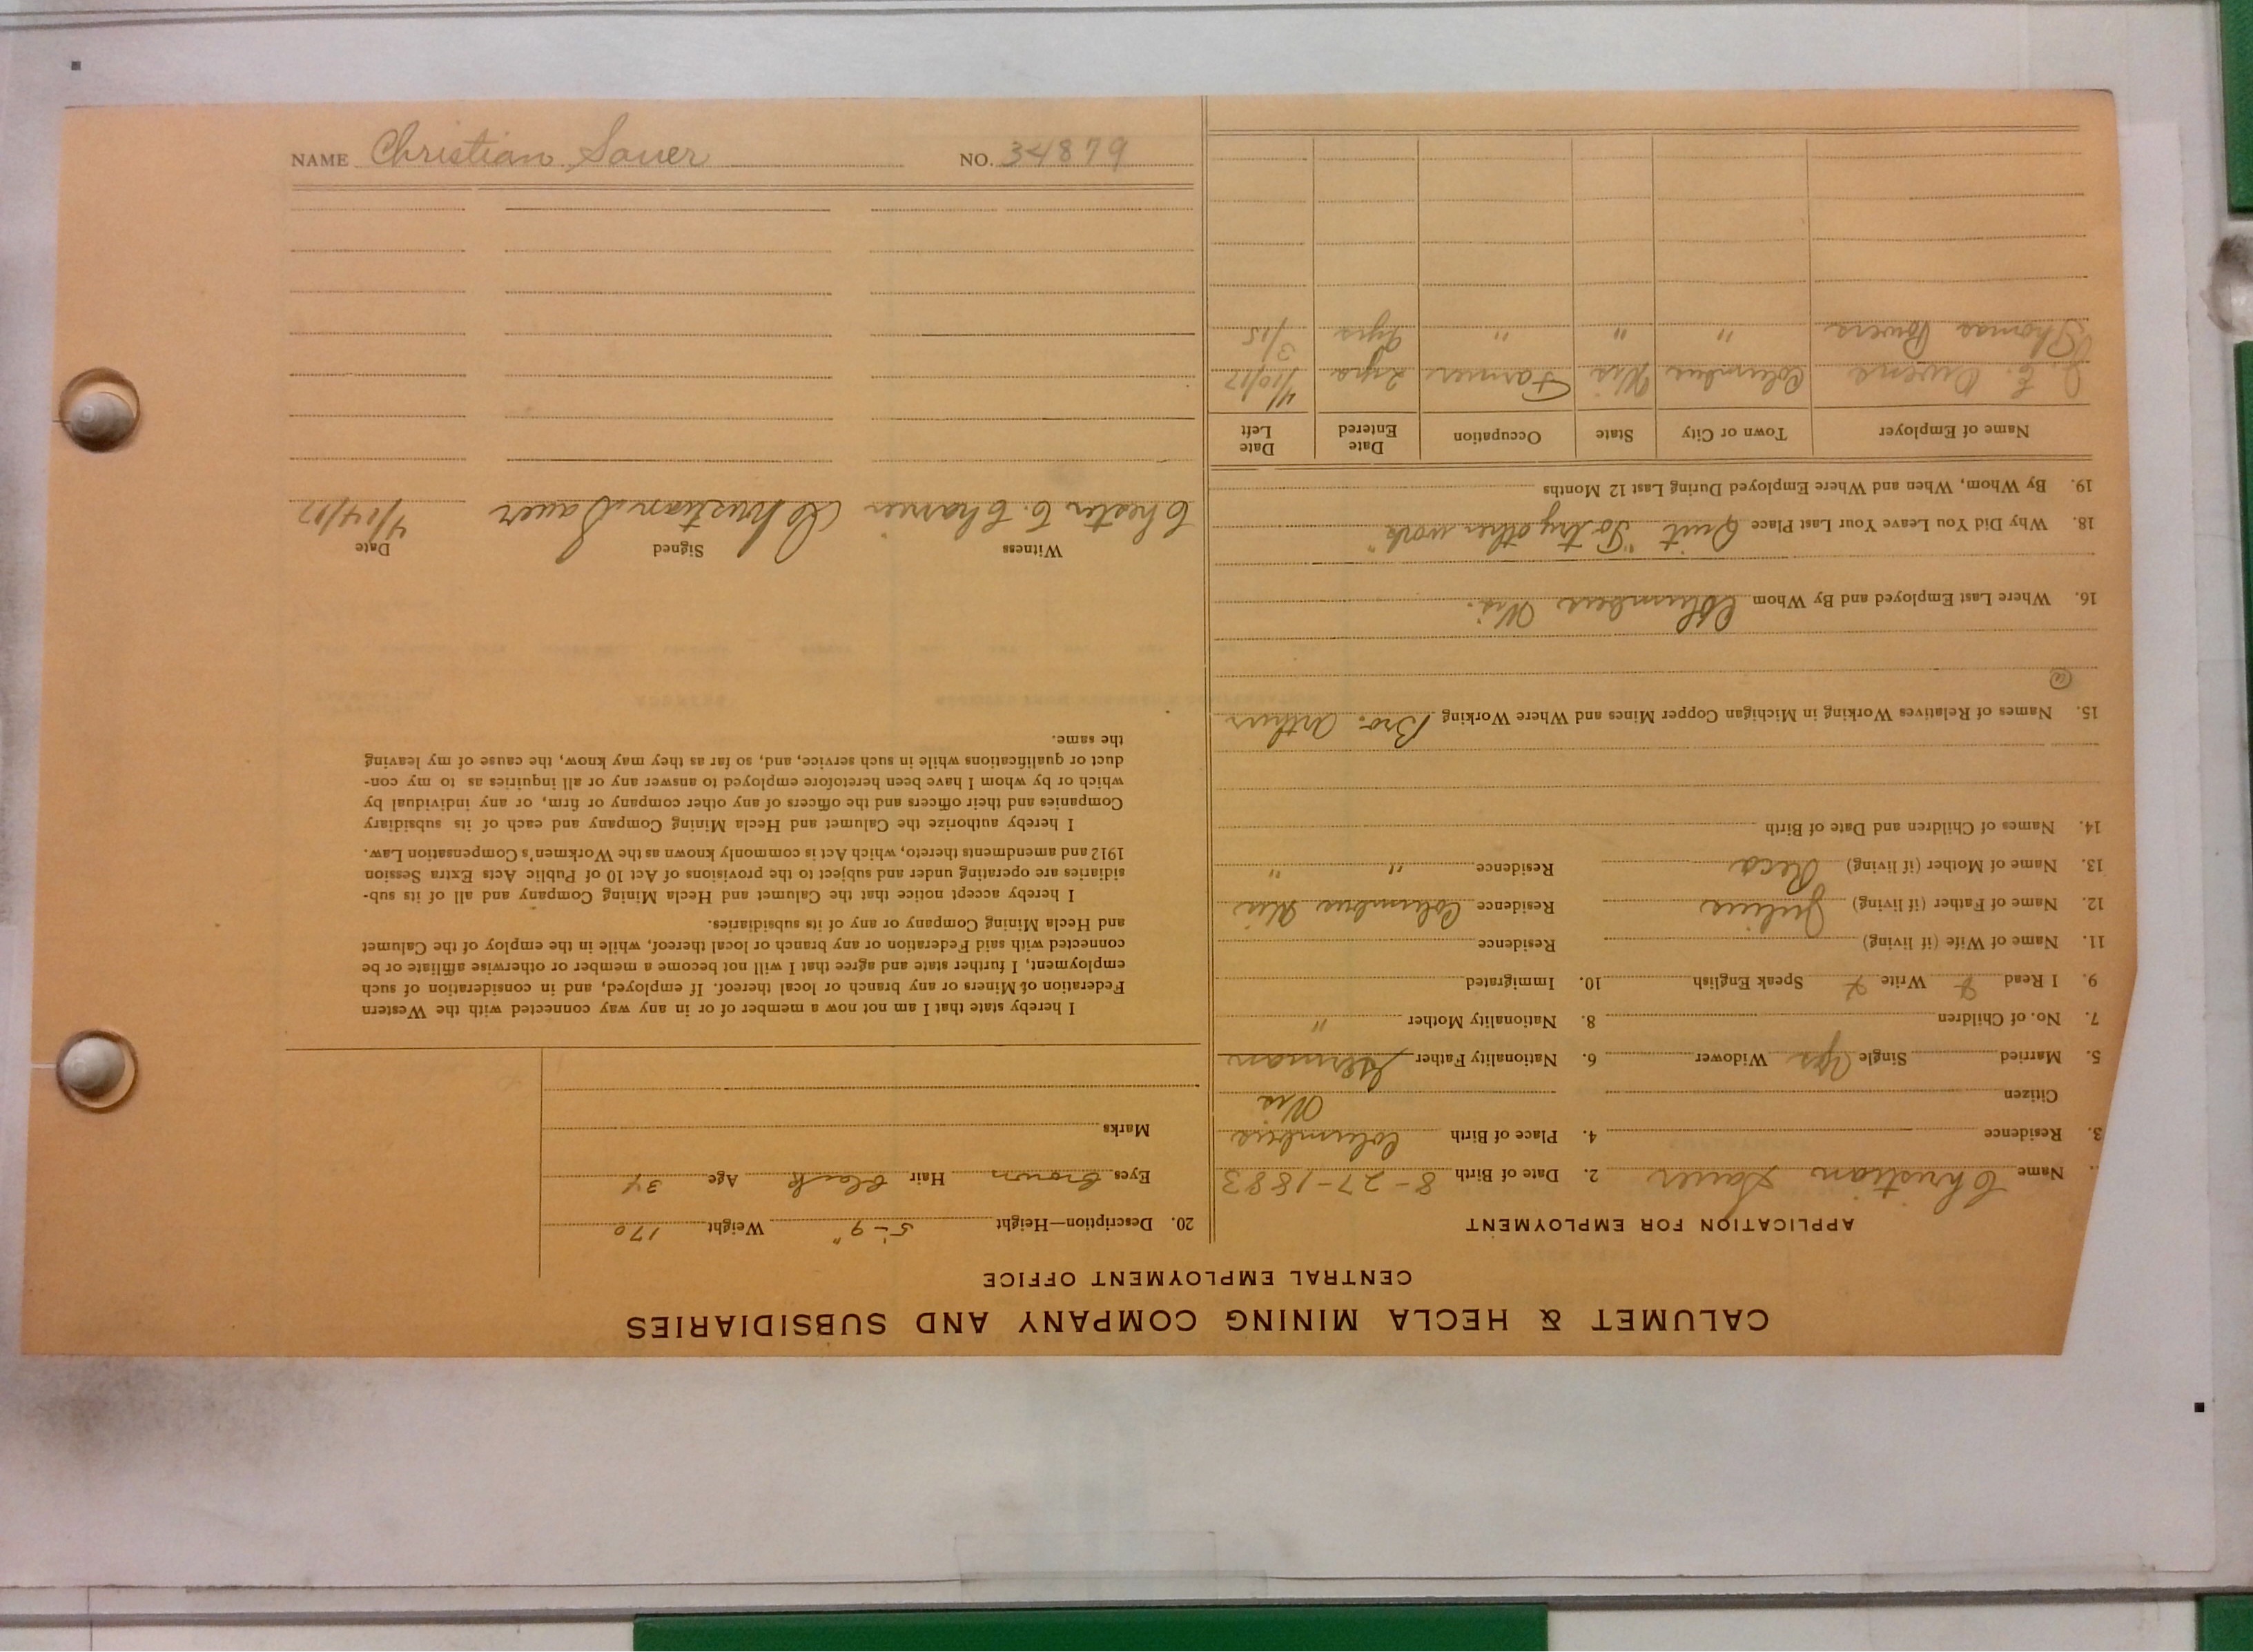 NAME Christian Sauer NO. 34879
CALUMET & HECLA MINING COMPANY AND SUBSIDIARIES
CENTRAL EMPLOYMENT OFFICE
APPLICATION FOR EMPLOYMENT
Name Christian Sauer 2. Date of Birth 8-27-1883
3. Residence 4. Place of Birth Columbus
Wis
Citizen
5. Married Single Yes Widower 6. Nationality Father German
7. No. of Children 8. Nationality Mother "
9. I Read Write Speak English 10. Immigrated
11. Name of Wife (if living) Residence
12. Name of Father (if living) Julius Residence Columbus Wis
13. Name of Mother (if living) Reca Residence " "
14. Names of Children and Date of Birth
15. Names of Relatives Working in Michigan Copper Mines and Where Working Bro. Arthur
16. Where Last Employed and By Whom Columbus Wis.
18. Why Did You Leave Your Last Place Quit "To try other work"
19. By Whom, When and Where Employed During Last 12 Months
Name of Employer Town or City State Occupation Date Entered Date Left
E. Owens Columbus Wis Farmer 2 yrs 4/10/17
Thomas Powers " " " 2 yrs 3/15
20. Description—Height 5-9" Weight 170
Eyes brown Hair black Age 34
Marks
I hereby state that I am not now a member of or in any way connected with the Western
Federation of Miners or any branch or local thereof. If employed, and in consideration of such
employment, I further state and agree that I will not become a member or otherwise affiliate or be
connected with said Federation or any branch or local thereof, while in the employ of the Calumet
and Hecla Mining Company or any of its subsidiaries.
I hereby accept notice that the Calumet and Hecla Mining Company and all of its sub-
sidiaries are operating under and subject to the provisions of Act 10 of Public Acts Extra Session
1912 and amendments thereto, which Act is commonly known as the Workmen's Compensation Law.
I hereby authorize the Calumet and Hecla Mining Company and each of its subsidiary
Companies and their officers and the officers of any other company or firm, or any individual by
which or by whom I have been heretofore employed to answer any or all inquiries as to my con-
duct or qualifications while in such service, and, so far as they may know, the cause of my leaving
the same.
Witness Signed Date
Chester C. Christian Sauer 4/14/17